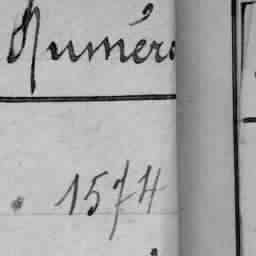 Numéro
1574